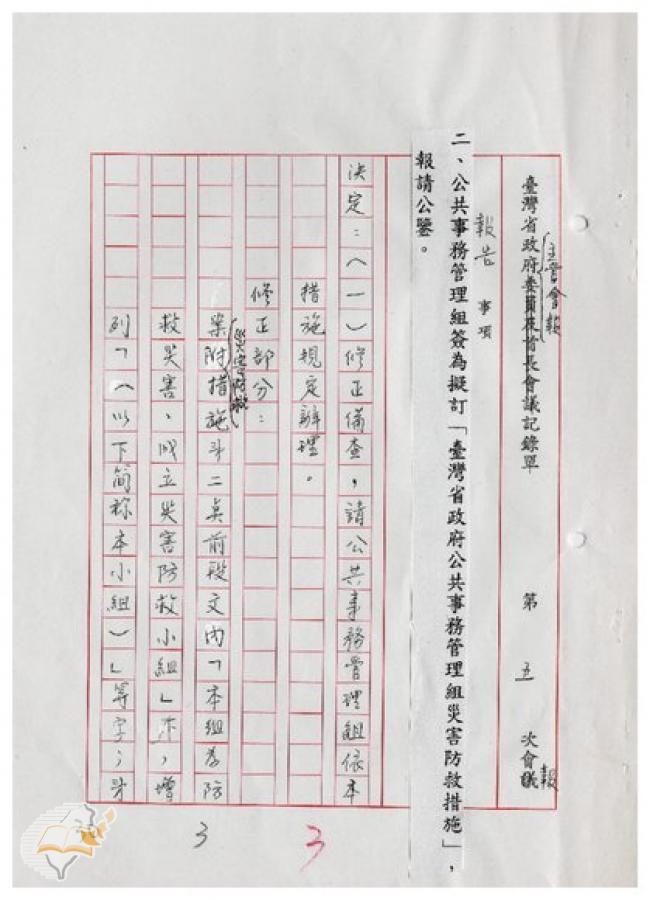 臺灣省政府委員及首長會議記錄單 第五次會議
主管會報
報
報告事項
二、公共事務管理組簽為擬訂「臺灣省政府公共事務管理組災害防救措施」,
報請公鑒。
決定:(一)修正備查,請公共事務管理組依本
措施規定辦理。
修正部分:
案附措施第二頁前段文內「本組為防
災害防救
救災害、成立災害防救小組」下,增
列「(以下簡稱本小組)」等字;第
3
3